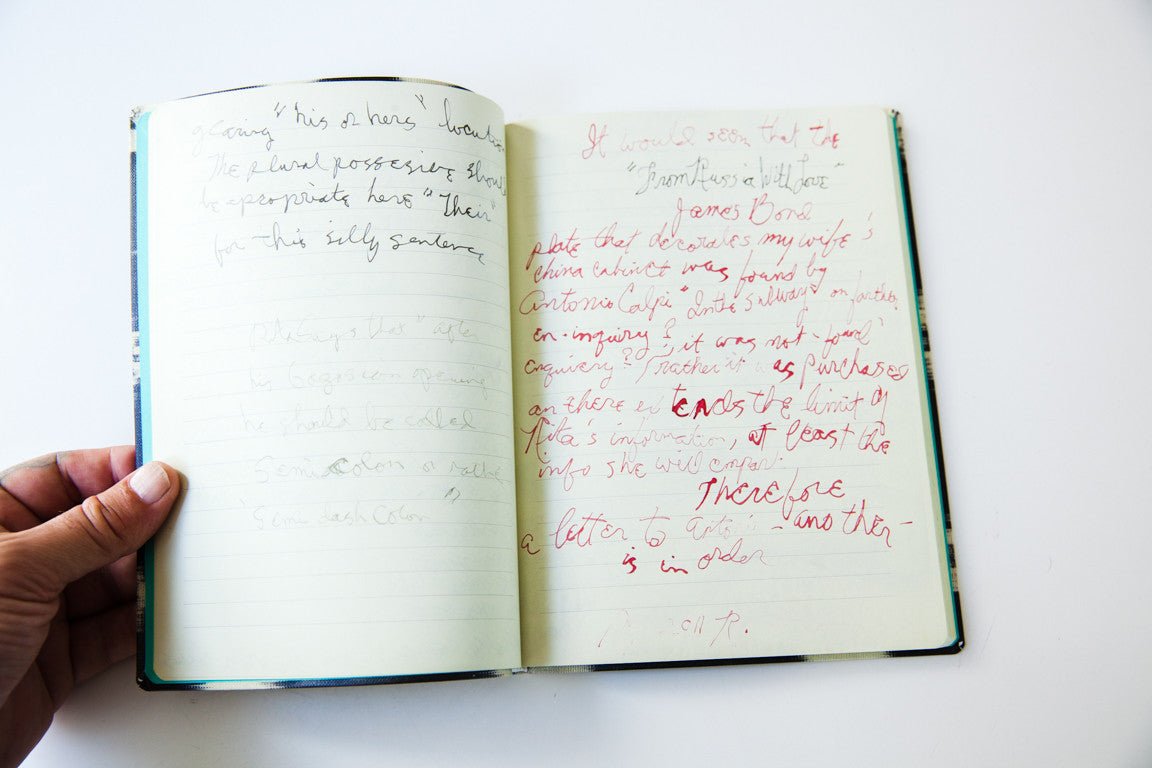 glaring "his or hers" locution
The plural possesive should
be apropriate here "Their"
for this silly sentence
that" after
his Gagosian opening
he should be called
Semi Colon or rather
"Semi dash Colon"
It would seem that the
"From Russia With Love"
James Bond
plate that decorates my wife's
china cabinet was found by
Antonio Calpi "In the Subway" on farther
en-inquiry?; it was not "found"
enquirery? rather it was purchased
an there ex tends the limit of
Rita's information, at least the
info she will
Therefore
a letter to - another -
is in order
R.